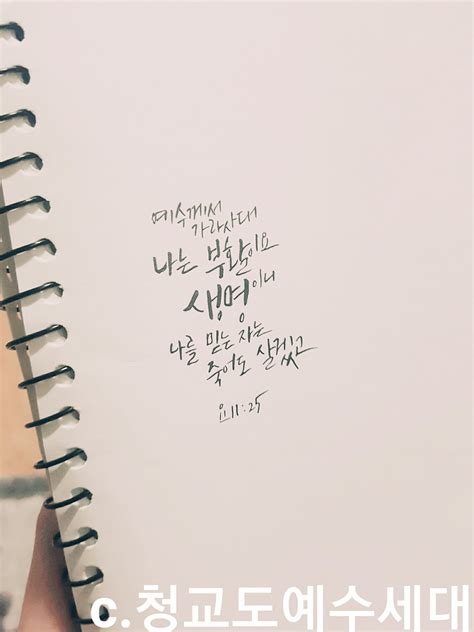 예수께서
가라사대
나는 부활이요
생명이니
나를 믿는 자는
죽어도 살겠고
요11:25
c.청교도예수세대